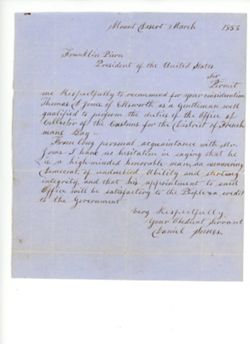 Mount Desert March 1853
Franklin Pierce
President of the United States
Sir
Permit
me Respectfully to recommend for your consideration
Thomas D Jones of Ellsworth as a Gentleman well
qualified to perform the duties of the Office of
Collector of the Customs for the District of French-
mans Bay
From long personal acquaintance with Mr.
Jones I have no hesitation in saying that he
is a high-minded honorable man, an unwavering
Democrat, of undoubted Ability and sterling
integrity, and that his appointment to said
Office will be satisfactory to the People & a credit
to the Government
Very Respectfully
Your Obedient Servant
Daniel